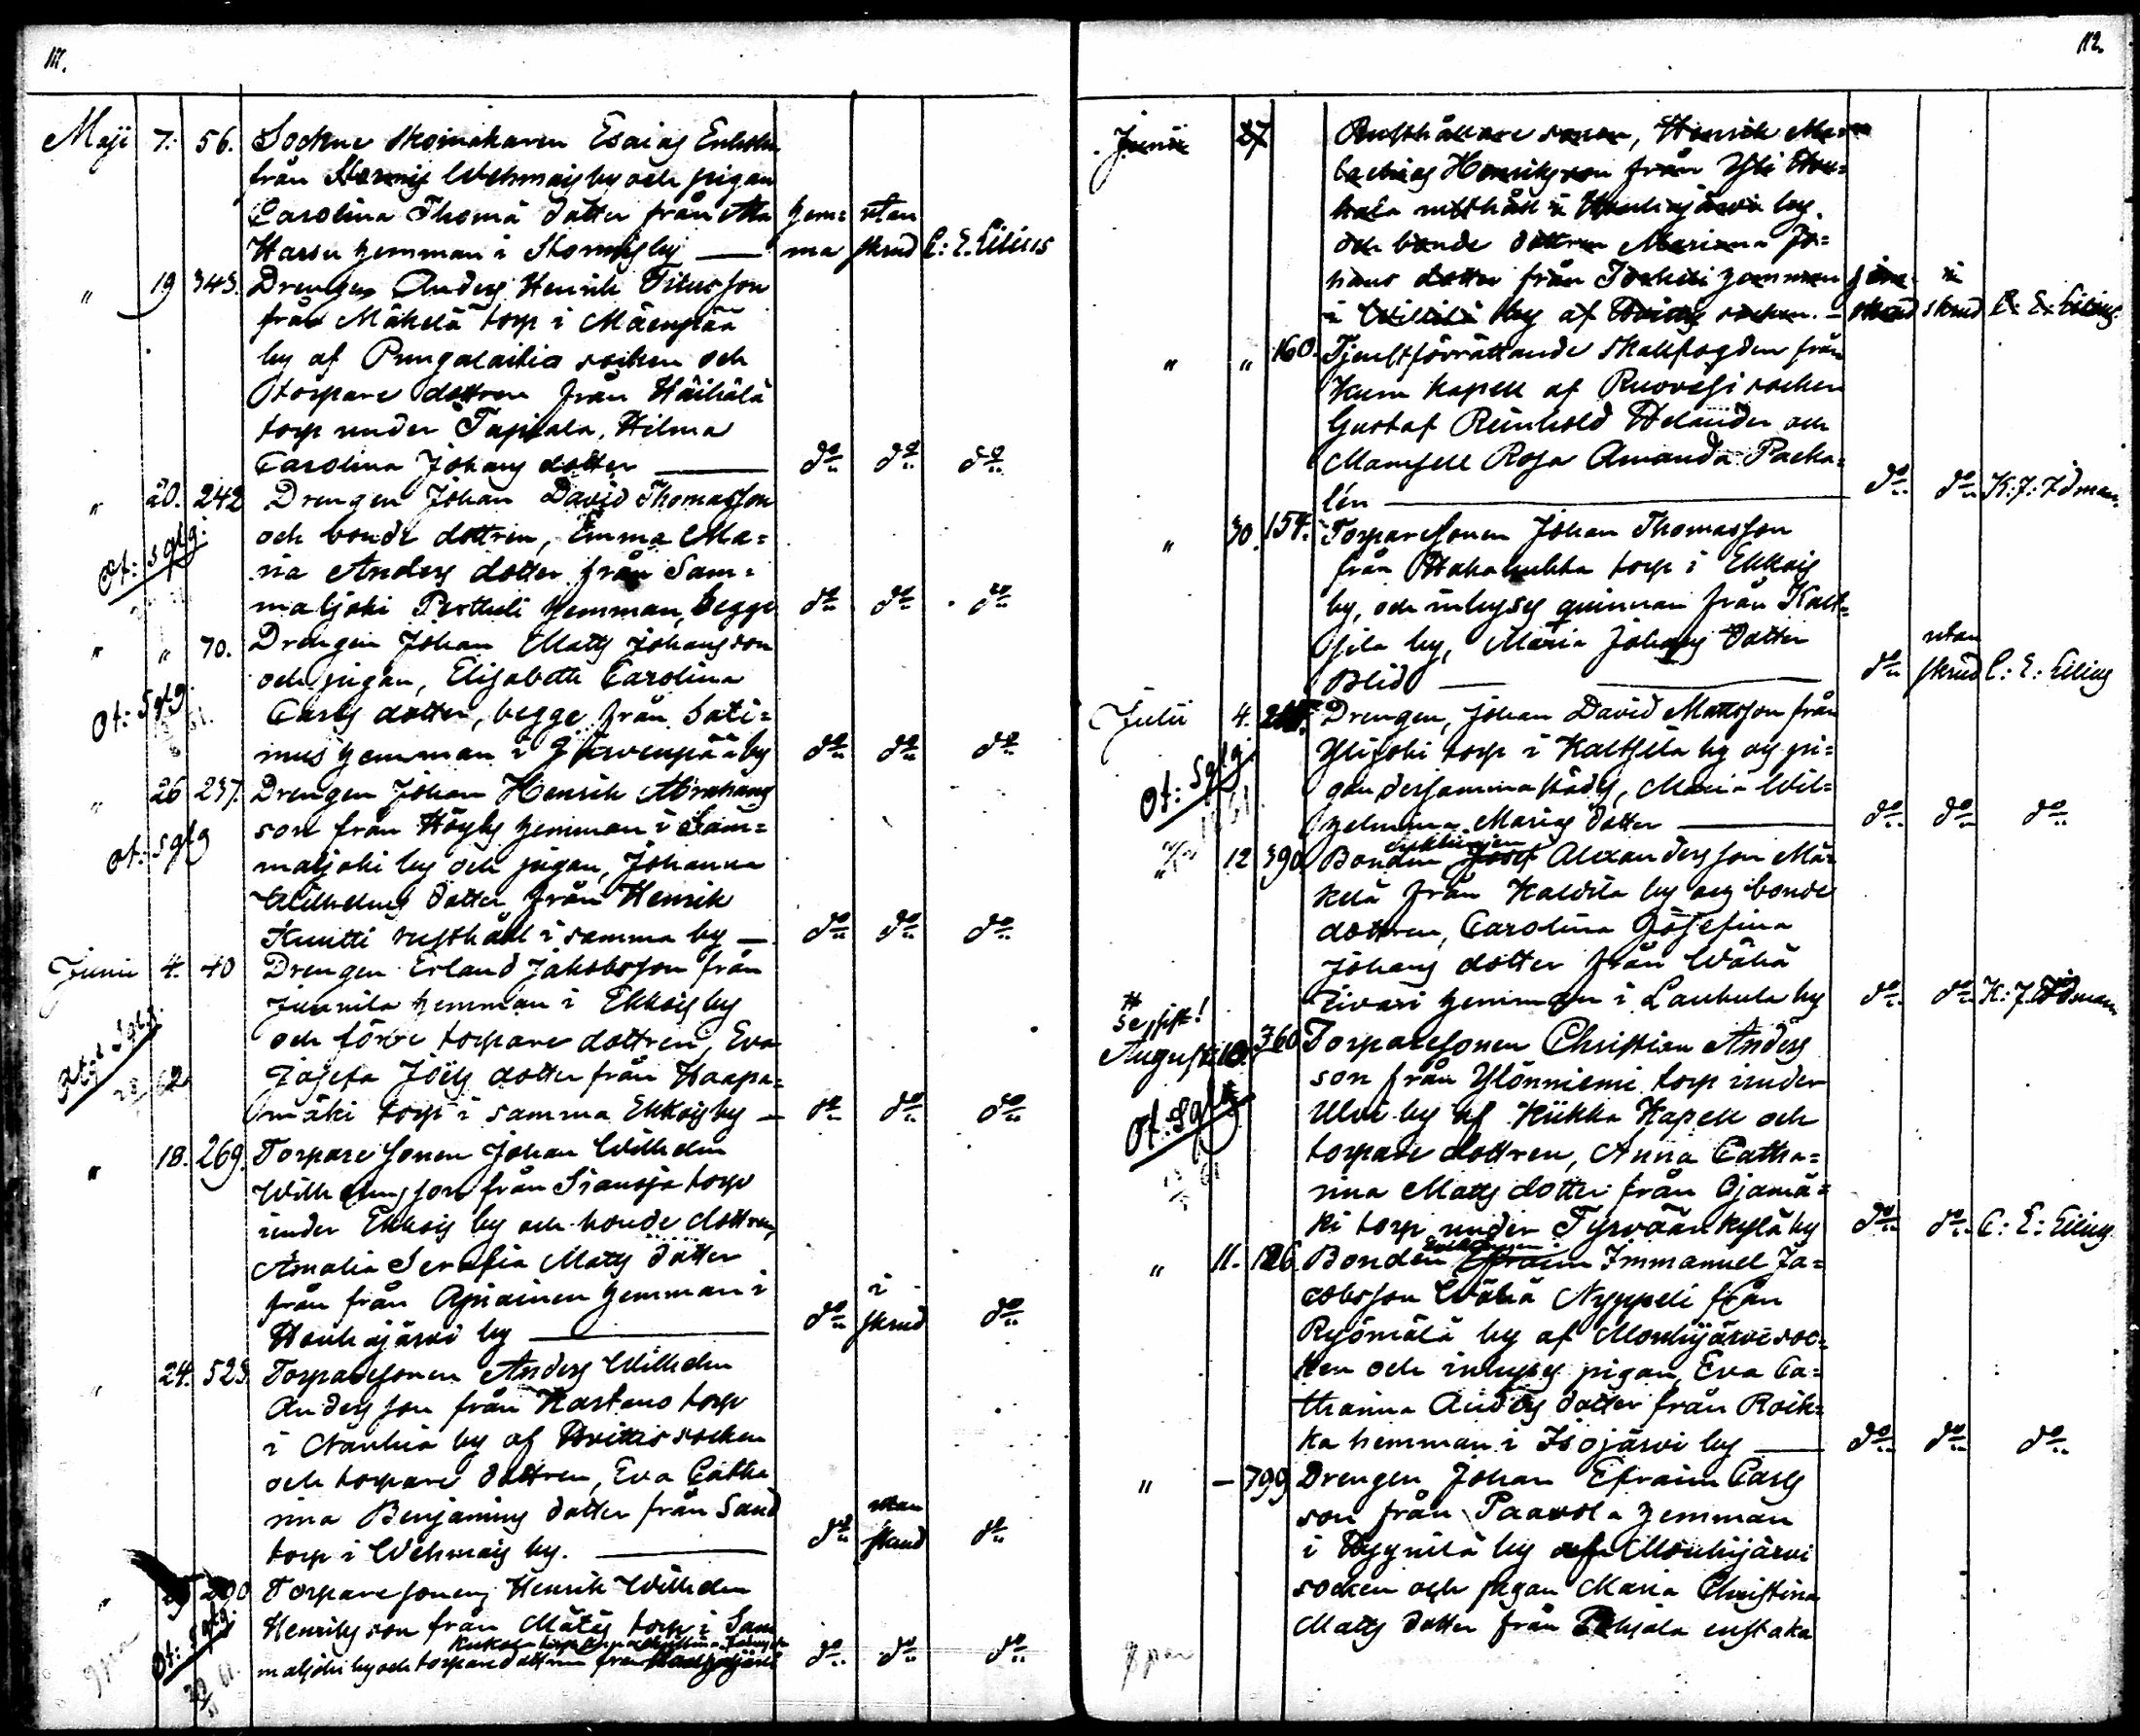 111.
Maji 7. 56. Sockne skomakaren Esaias Enholm
från Stormis Wehmais by och pigan
Carolina Thomä dotter från Ala hem= utan
Harsu hemman i Stormis by — ma skrud C: E: Eilius
" 19 343. Drengen Anders Henrik Titusson
från Mäkelä torp i Mäenpää
by af Pungalaitio socken och
torpare dottren från Häihälä
torp under Tapiala, Hilma
Carolina Johans dotter — do do do
" 20. 242 Drengen Johan David Thomasson
Ot: sgtg: och bonde dottren, Emma Ma=
ria Anders dotter från Sam=
maljoki Perttuli hemman, begge do do do
" " 70. Drengen Johan Matts Johansson
och pigan, Elisabeth Carolina
Ot: Sgtg. Carls dotter, begge från Sati=
mus hemman i Järvenpää by do do do
" 26 237. Drengen Johan Henrik Abrahams
son från Höyky hemman i Sam=
Ot: sgtg maljoki by och pigan, Johanna
Wilhelms dotter från Henrik
Knutti rusthåll i samma by — do do do
Junii 4. 40 Drengen Erland Jakobsson från
Junnila hemman i Ekkois by
och förre torpare dottren, Eva
Josefa Joels dotter från Haapa=
mäki torp i samma Ekkois by — do do do
" 18. 269. Torpare sonen Johan Wilhelm
Wilhelmsson från Siansija torp
under Ekkois by och bonde dottren,
Amalia Serafia Matts dotter
från från Apiainen hemman i i
Houhajärvi by — do skrud do
" 24. 523. Torparesonen Anders Wilhelm
Andersson från Kartano torp
i Nauhia by af Hvittis socken
och torpare dottren, Eva Catha
rina Benjamins dotter från Sand utan
torp i Wehmais by. — do skrud do
" 29 200 Torparesonen, Henrik Wilhelm
Ot: Sgtg. Henriksson från Mätäs torp i Sam
maljoki by och torpare dottren från do do do
112.
Junii 27 Rusthållare sonen, Henrik Ma
lachias Henriksson från Yli Hou=
hala rusthåll i Houhajärvi by.
och bonde dottren Mariana Jo=
hans dotter från Jaakkii hemman i
i Willilä by af Hvittis socken. — skrud skrud C: E: Eilius
" " 160. Tjenstförrättande skallfogden från
Kuru kapell af Ruovesi socken
Gustaf Reinhold Helander och
Mamsell Rosa Amanda Packa=
lén — do do K: J: Idman.
" 30. 154. Torparesonen Johan Thomasson
från Hakahuhta torp i Ekkois
by, och inhyses quinnan från Kalt=
sila by, Maria Johans dotter utan
Blid — do skrud C: E: Eilius
Julii 4. Drengen, Johan David Mattsson från
Ylijoki torp i Kaltsila by och pi=
Ot: Sgtg. gan dersammastäds, Maria Wil=
helmina Marias dotter — do do do
enklingen
" 12 390 Bonden Josef Alexandersson Mä=
kelä från Kaldila by och bonde
dottren, Carolina Josefina
Johans dotter från Wähä
Eivari hemman i Laukula by do do K: J: Idman
Se, jst!
Augusti 10. 360 Torparesonen Christian Anders
son från Ylönniemi torp under
Ulvi by af Kiikka Kapell och
Ot: Sgtg torpare dottren, Anna Catha=
rina Matts dotter från Ojamä=
ki torp under Tyrvään kylä by do do C: E: Eilius
Enklingen
" 11. 126. Bonden Efraim Immanuel Ja=
cobsson Wähä Nyppeli från
Ryömälä by af Mouhijärvi soc=
ken och inhyses pigan, Eva Ca=
tharina Anders dotter från Roik=
ka hemman i Isojärvi by — do do do
" — 799 Drengen Johan Efraim Carls
son från Paavola hemman
i Hyynilä by af Mouhijärvi
socken och pigan Maria Christina
Matts dotter från Pohjala enstaka